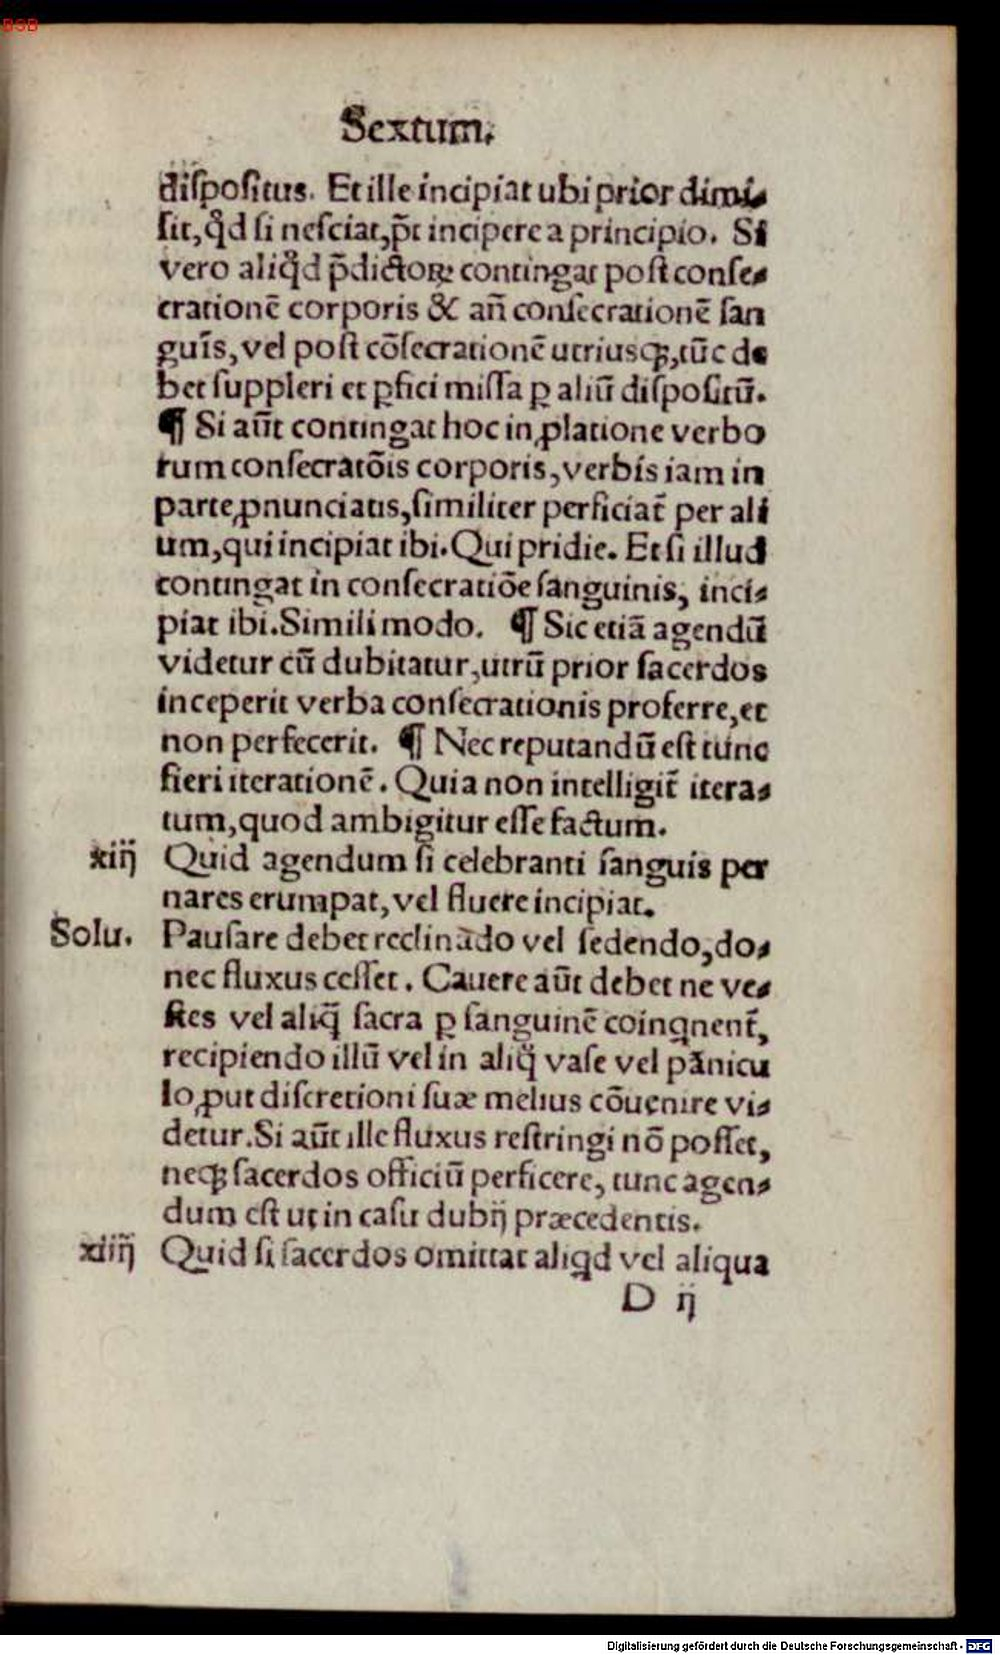 BSB
Sextum.
dispositus. Et ille incipiat ubi prior dimi⸗
sit, qđ si nesciat, p̃t incipere a principio. Si
vero aliqđ p̃dictoꝝ contingat post conse⸗
crationē corporis & añ consecrationē san
guīs, vel post cōsecrationē utriusqꝫ, tūc de
bet suppleri et ꝑfici missa ꝑ aliū dispositū.
¶ Si aūt contingat hoc in ꝓlatione verbo
rum consecratōis corporis, verbis iam in
parte ꝓnunciatis, similiter perficiat̃ per ali
um, qui incipiat ibi. Qui pridie. Et si illud
contingat in consecratiōe sanguinis, inci⸗
piat ibi. Simili modo. ¶ Sic etiā agendū
videtur cū dubitatur, utrū prior sacerdos
inceperit verba consecrationis proferre, et
non perfecerit. ¶ Nec reputandū est tunc
fieri iterationē. Quia non intelligit̃ itera⸗
tum, quod ambigitur esse factum.
xiij Quid agendum si celebranti sanguis per
nares erumpat, vel fluere incipiat.
Solu. Pausare debet reclinādo vel sedendo, do⸗
nec fluxus cesset. Cavere aūt debet ne ve⸗
stes vel aliq̃ sacra ꝑ sanguinē coinqnent̃,
recipiendo illū vel in aliq̃ vase vel pānicu
lo, ꝓut discretioni suæ melius cōvenire vi⸗
detur. Si aūt ille fluxus restringi nō posset,
neqꝫ sacerdos officiū perficere, tunc agen⸗
dum est ut in casu dubij præcedentis.
xiiij Quid si sacerdos omittat aliqd vel aliqua
D ij
Digitalisierung gefördert durch die Deutsche Forschungsgemeinschaft - DFG